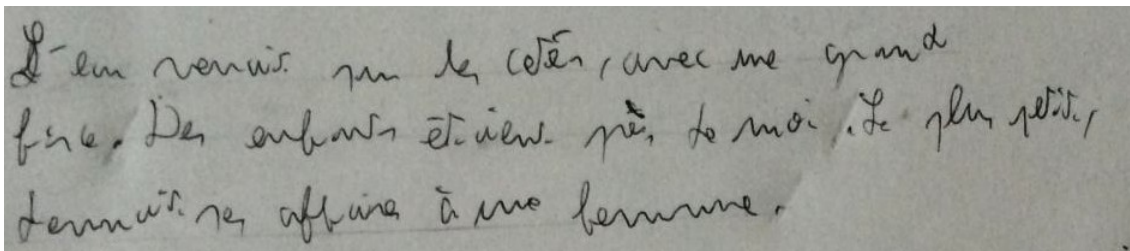 L'eau venait sur les cotés, avec une grand
force. Des enfants étaient près de moi. Le plus petit,
donnait ses affaires à une femme.